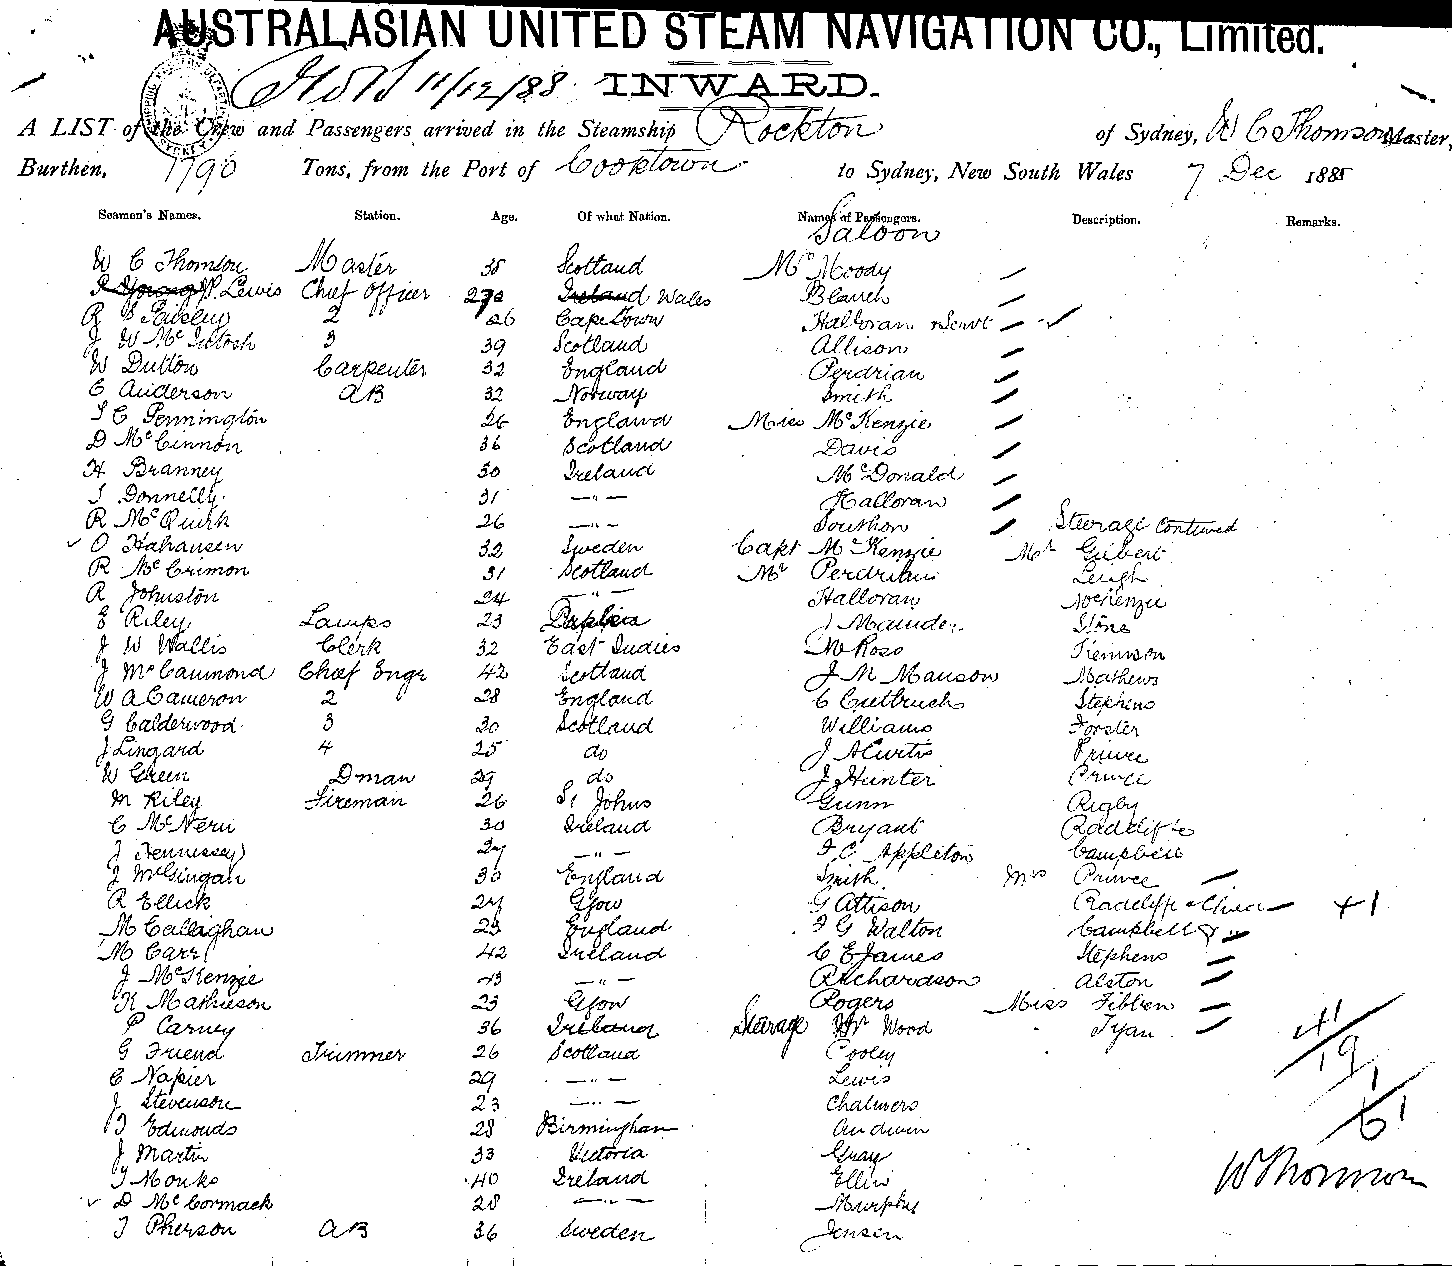 AUSTRALASIAN UNITED STEAM NAVIGATION CO., Limited.
11/12/88 INWARD.
A LIST of the Crew and Passengers arrived in the Steamship Rockton of Sydney, W C Thomson Master,
Burthen, 1790 Tons, from the Port of Cooktown to Sydney, New South Wales 7 Dec 1888
Seamen's Names. Station. Age. Of what Nation. Names of Passengers. Description. Remarks.
Saloon
W C Thomson Master 38 Scotland Mr Moody
P Lewis Chief Officer Ireland Wales Blanch
2 26 Cape Town Halloran & Servt
J W McIntosh 3 39 Scotland Allison
W Dutton Carpenter 32 England Perdrian
C Anderson AB 32 Norway Smith
S C Pennington 26 England Miss McKenzie
D McCinnon 36 Scotland Davis
H Branney 30 Ireland McDonald
J Donnelly 31 —"— Halloran
R McQuirk 26 —"— Southon Steerage Continued
O Hahausen 32 Sweden Capt McKenzie Mr Gilbert
R McCrimon 31 Scotland Mr Perdrian Leigh
R Johnston 24 —"— Halloran McKenzie
E Riley Lamps 23 J Maunder Stone
J W Wallis Clerk 32 East Indies M Ross Kennison
J McCammond Chief Engr 42 Scotland J M Manson Mathews
W A Cameron 2 28 England C Cutbruch Stephens
G Calderwood 3 30 Scotland Williams Forster
J Lingard 4 25 do J A Curtis Prince
W Green Dman 29 do J Hunter Prince
M Riley Fireman 26 St Johns Gunn Rigby
C McNern 30 Ireland Bryant Radcliffe
J Hennessey 27 —"— F C Appleton Campbell
J McGingan 30 England Smith Mrs Prince
R Ellick 27 Glow G Attison Radcliffe & Child +1
M Callighan 23 England F G Walton Campbell
M Carr 42 Ireland C E James Stephens
J McKenzie 43 —"— Richardson Alston
K Mathieson 23 Glow Rogers Miss Fibben
P Carney 36 Ireland Steerage Mr Wood Tyan
G Friend Trimmer 26 Scotland Cooley
41
19
C Napier 29 —"— Lewis
1
J Stevenson 23 —"— Chalmers
61
T Edmonds 28 Birmingham Andwin
J Martin 33 Victoria Gray
T Monks 40 Ireland Ellis
W Thomson
D McCormack 28 —"— Murphy
T Pherson AB 36 Sweden Jensen